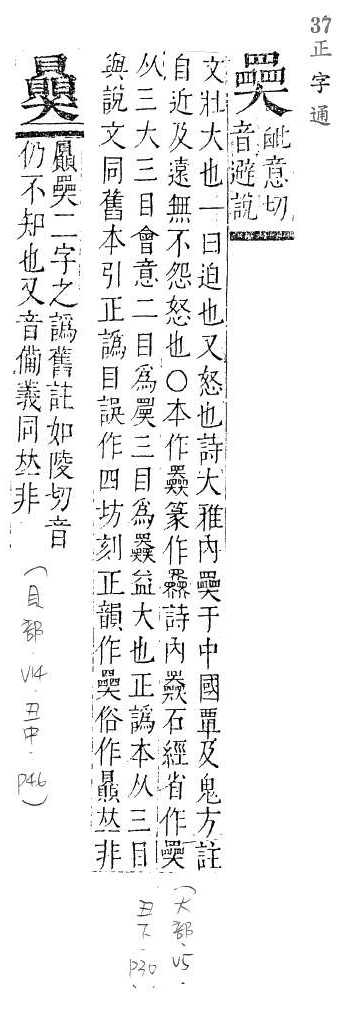 37 正字通
奰 毗意切
音避說
文壯大也一曰迫也又怒也詩大雅內奰于中國覃及鬼方註
自近及遠無不怨怒也〇本作 篆作 詩內 石經省作奰
从三大三目會意二目爲 三目爲 益大也正譌本从三目
與說文同舊本引正譌目誤作四坊刻正韻作奰俗作贔𠀤非
(大部·V5·
丑下·p30)
贔奰二字之譌舊註如陵切音
仍不知也又音備義同𠀤非
(貝部·V14·丑中·p46)